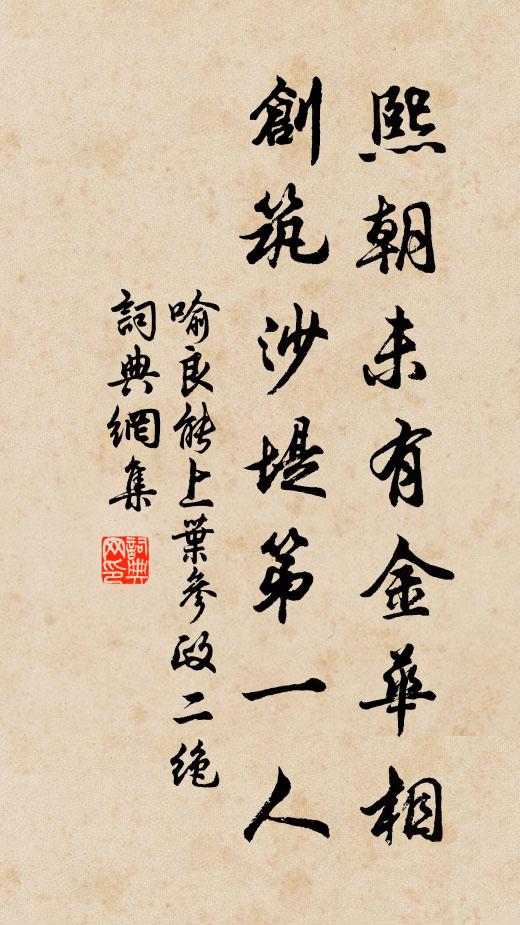 熙朝未有金華相
創筑沙堤第一人
喻良能上葉參政二绝
詞典網集
詞典網印